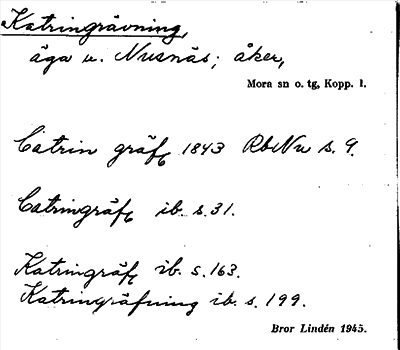 Katringrävning,
äga u. Nusnäs; åker,
Mora sn o. tg, Kopp. l.
Catrin gräfg 1843 RbNu s. 9.
Catringräfg ib. s. 31.
Katringräfg ib. s. 163.
Katringräfning ib. s. 199.
Bror Lindén 1945.